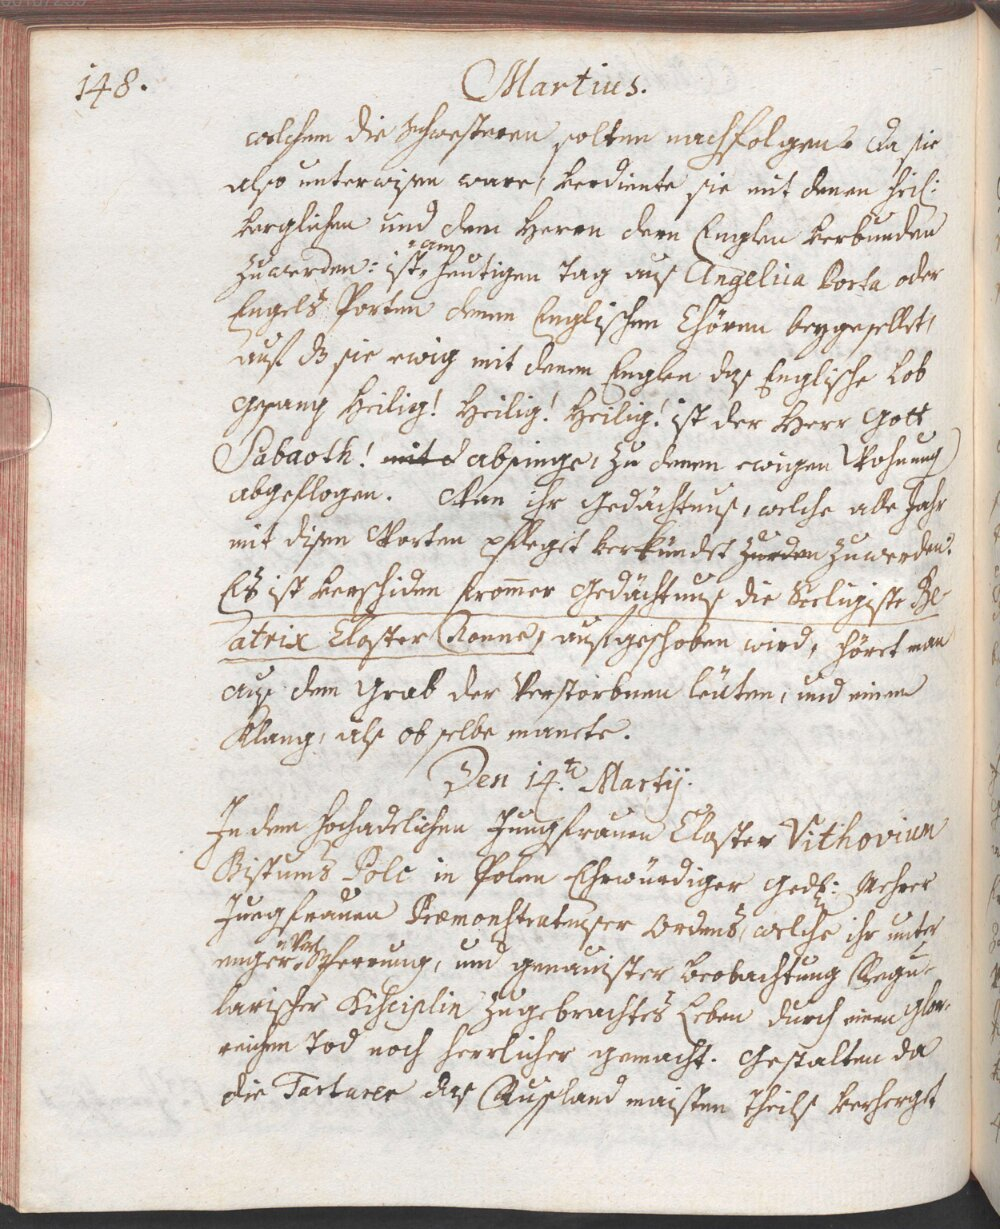 148.
Martius.
welchem die Schwesteren solten nachfolgen. Da sie
also unterwisen ware, verdiente sie mit denen heil:
verglichen und dem Herrn dern Englen verbunden
zuwerden: ist, am heutigen Tag aus Angelica Porta oder
Engels Porten denen Englischen Chören beygesellet,
auf dz sie ewig mit denen Englen das Englische Lob
gesang Heilig! Heilig! Heilig! ist der Herr Gott
Sabaoth! mit absinge, zu denen ewigen Wohnung
abgeflogen. Wan ihr Gedächtnus, welche alle Jahr
mit disen Worten pflegt verkündet zurden zuwerden:
Es ist verschiden frommer Gedächtnus die Seeligiste Be-
atrix Closter Nonne, aufgeschoben wird, höret man
aus dem Grab der Verstorbnen leüten, und einen
Klang, als ob selbe
Den 14.t Martij.
In dem hochadelichen Jungfrauen Closter Vithovium
Bistums Polc in Polen Ehrwürdiger Ged: Mehrer
Jungfrauen Præmonstratenser Ordens, welche ihr unter
enger Versperrung, und genauister Beobachtung Regu-
larischer Disciplin zugebrachtes Leben durch einen glor-
reichen Tod noch herrlicher gemacht. Gestalten da
die Tartarer das Russland maisten Theils verhergt